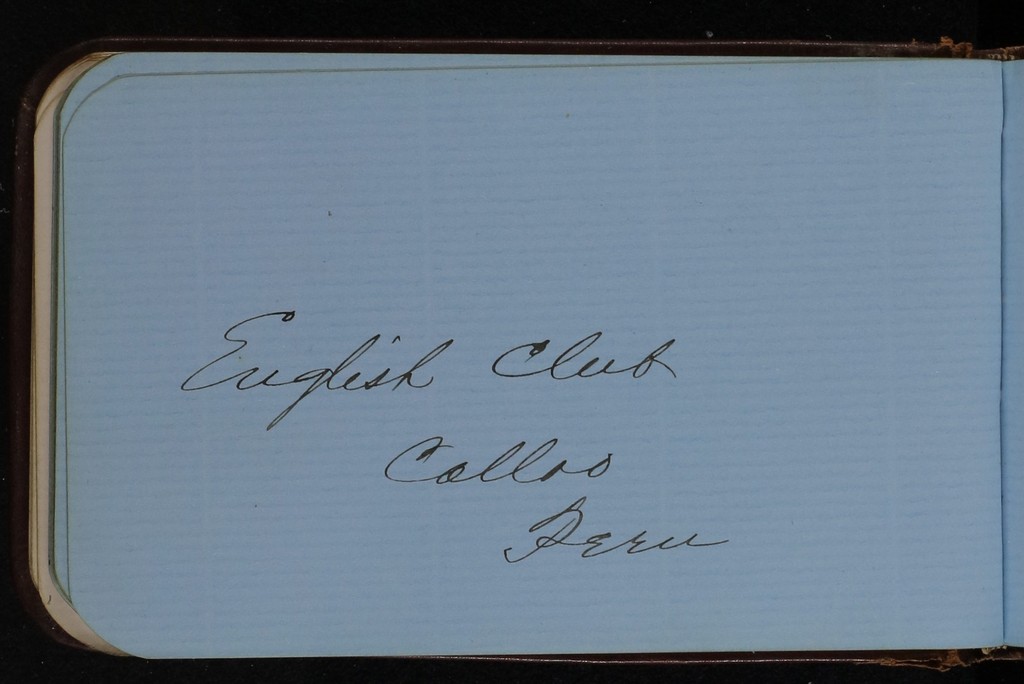 English Club
Callao
Peru